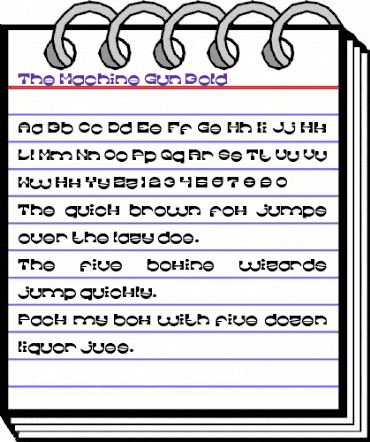 The Machine Gun Bold
Aa Bb Cc Dd Ee Ff Gg Hh Ii Jj Kk
Ll Mm Nn Oo Pp Qq Rr Ss Tt Uu Vv
Ww Xx Yy Zz 1 2 3 4 5 6 7 8 9 0
The quick brown fox jumps
over the lazy dog.
The five boxing wizards
jump quickly.
Pack my box with five dozen
liquor jugs.